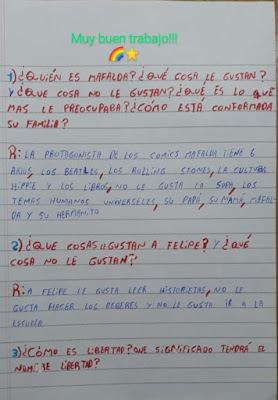 Muy buen trabajo!!!
1) ¿QUIÉN ES MAFALDA? ¿QUÉ COSA LE GUSTAN?
Y ¿QUE COSA NO LE GUSTAN? ¿QUÉ ES LO QUE
MAS LE PREOCUPABA? ¿CÓMO ESTÁ CONFORMADA
SU FAMILIA?
R: LA PROTAGONISTA DE LOS COMICS MAFALDA TIENE 6
AÑOS, LOS BEATLES, LOS ROLLING STONES, LA CULTURA
HIPPIE Y LOS LIBROS, NO LE GUSTA LA SOPA, LOS
TEMAS HUMANOS UNIVERSELES, SU PAPÁ, SU MAMÁ, MAFAL-
DA Y SU HERMANITO
2) ¿QUE COSAS LE GUSTAN A FELIPE? Y ¿QUÉ
COSA NO LE GUSTAN?
R: A FELIPE LE GUSTA LEER HISTORIETAS, NO LE
GUSTA HACER LOS DEBERES Y NO LE GUSTA IR A LA
ESCUELA
3) ¿CÓMO ES LIBERTAD? QUE SIGNIFICADO TENDRÁ EL
NOMBRE LIBERTAD?